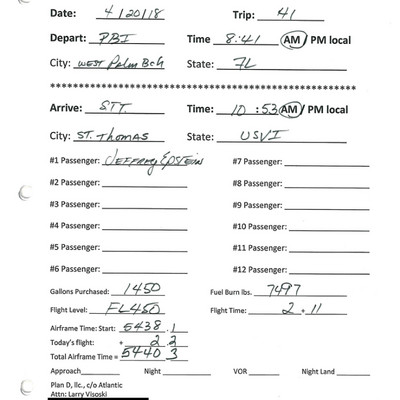 Date: 4/20/18 Trip: 41
Depart: PBI Time 8:41 AM / PM local
City: West Palm Bch State: FL
********************************************************
Arrive: STT. Time: 10:53 AM / PM local
City: St. Thomas State: USVI
#1 Passenger: Jeffrey Epstein #7 Passenger:
#2 Passenger: #8 Passenger:
#3 Passenger: #9 Passenger:
#4 Passenger: #10 Passenger:
#5 Passenger: #11 Passenger:
#6 Passenger: #12 Passenger:
Gallons Purchased: 1450 Fuel Burn lbs. 7497
Flight Level: FL450 Flight Time: 2 + 11
Airframe Time: Start: 5438.1
Today's flight: + 2.2
Total Airframe Time = 5440.3
Approach Night VOR Night Land
Plan D, llc., c/o Atlantic
Attn: Larry Visoski